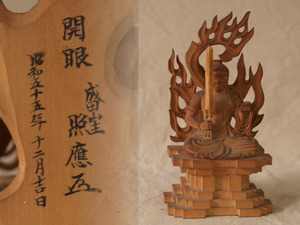 開眼
成田山
照應
昭和五十五年十二月吉日